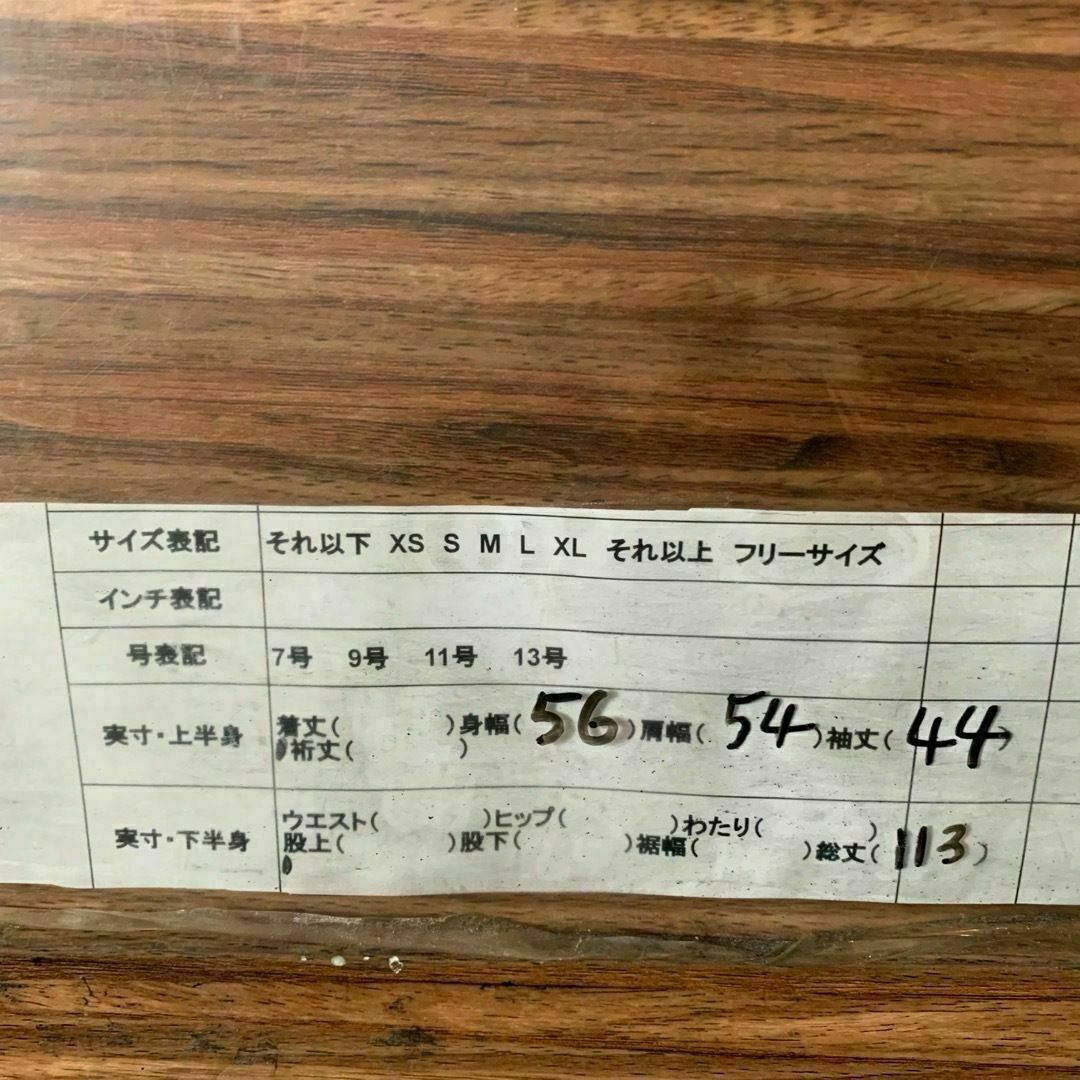 サイズ表記 それ以下 XS S M L XL それ以上 フリーサイズ
インチ表記
号表記 7号 9号 11号 13号
実寸・上半身 着丈( )身幅(56)肩幅(54)袖丈(44)
裄丈( )
実寸・下半身 ウエスト( )ヒップ( )わたり( )
股上( )股下( )裾幅( )総丈(113)